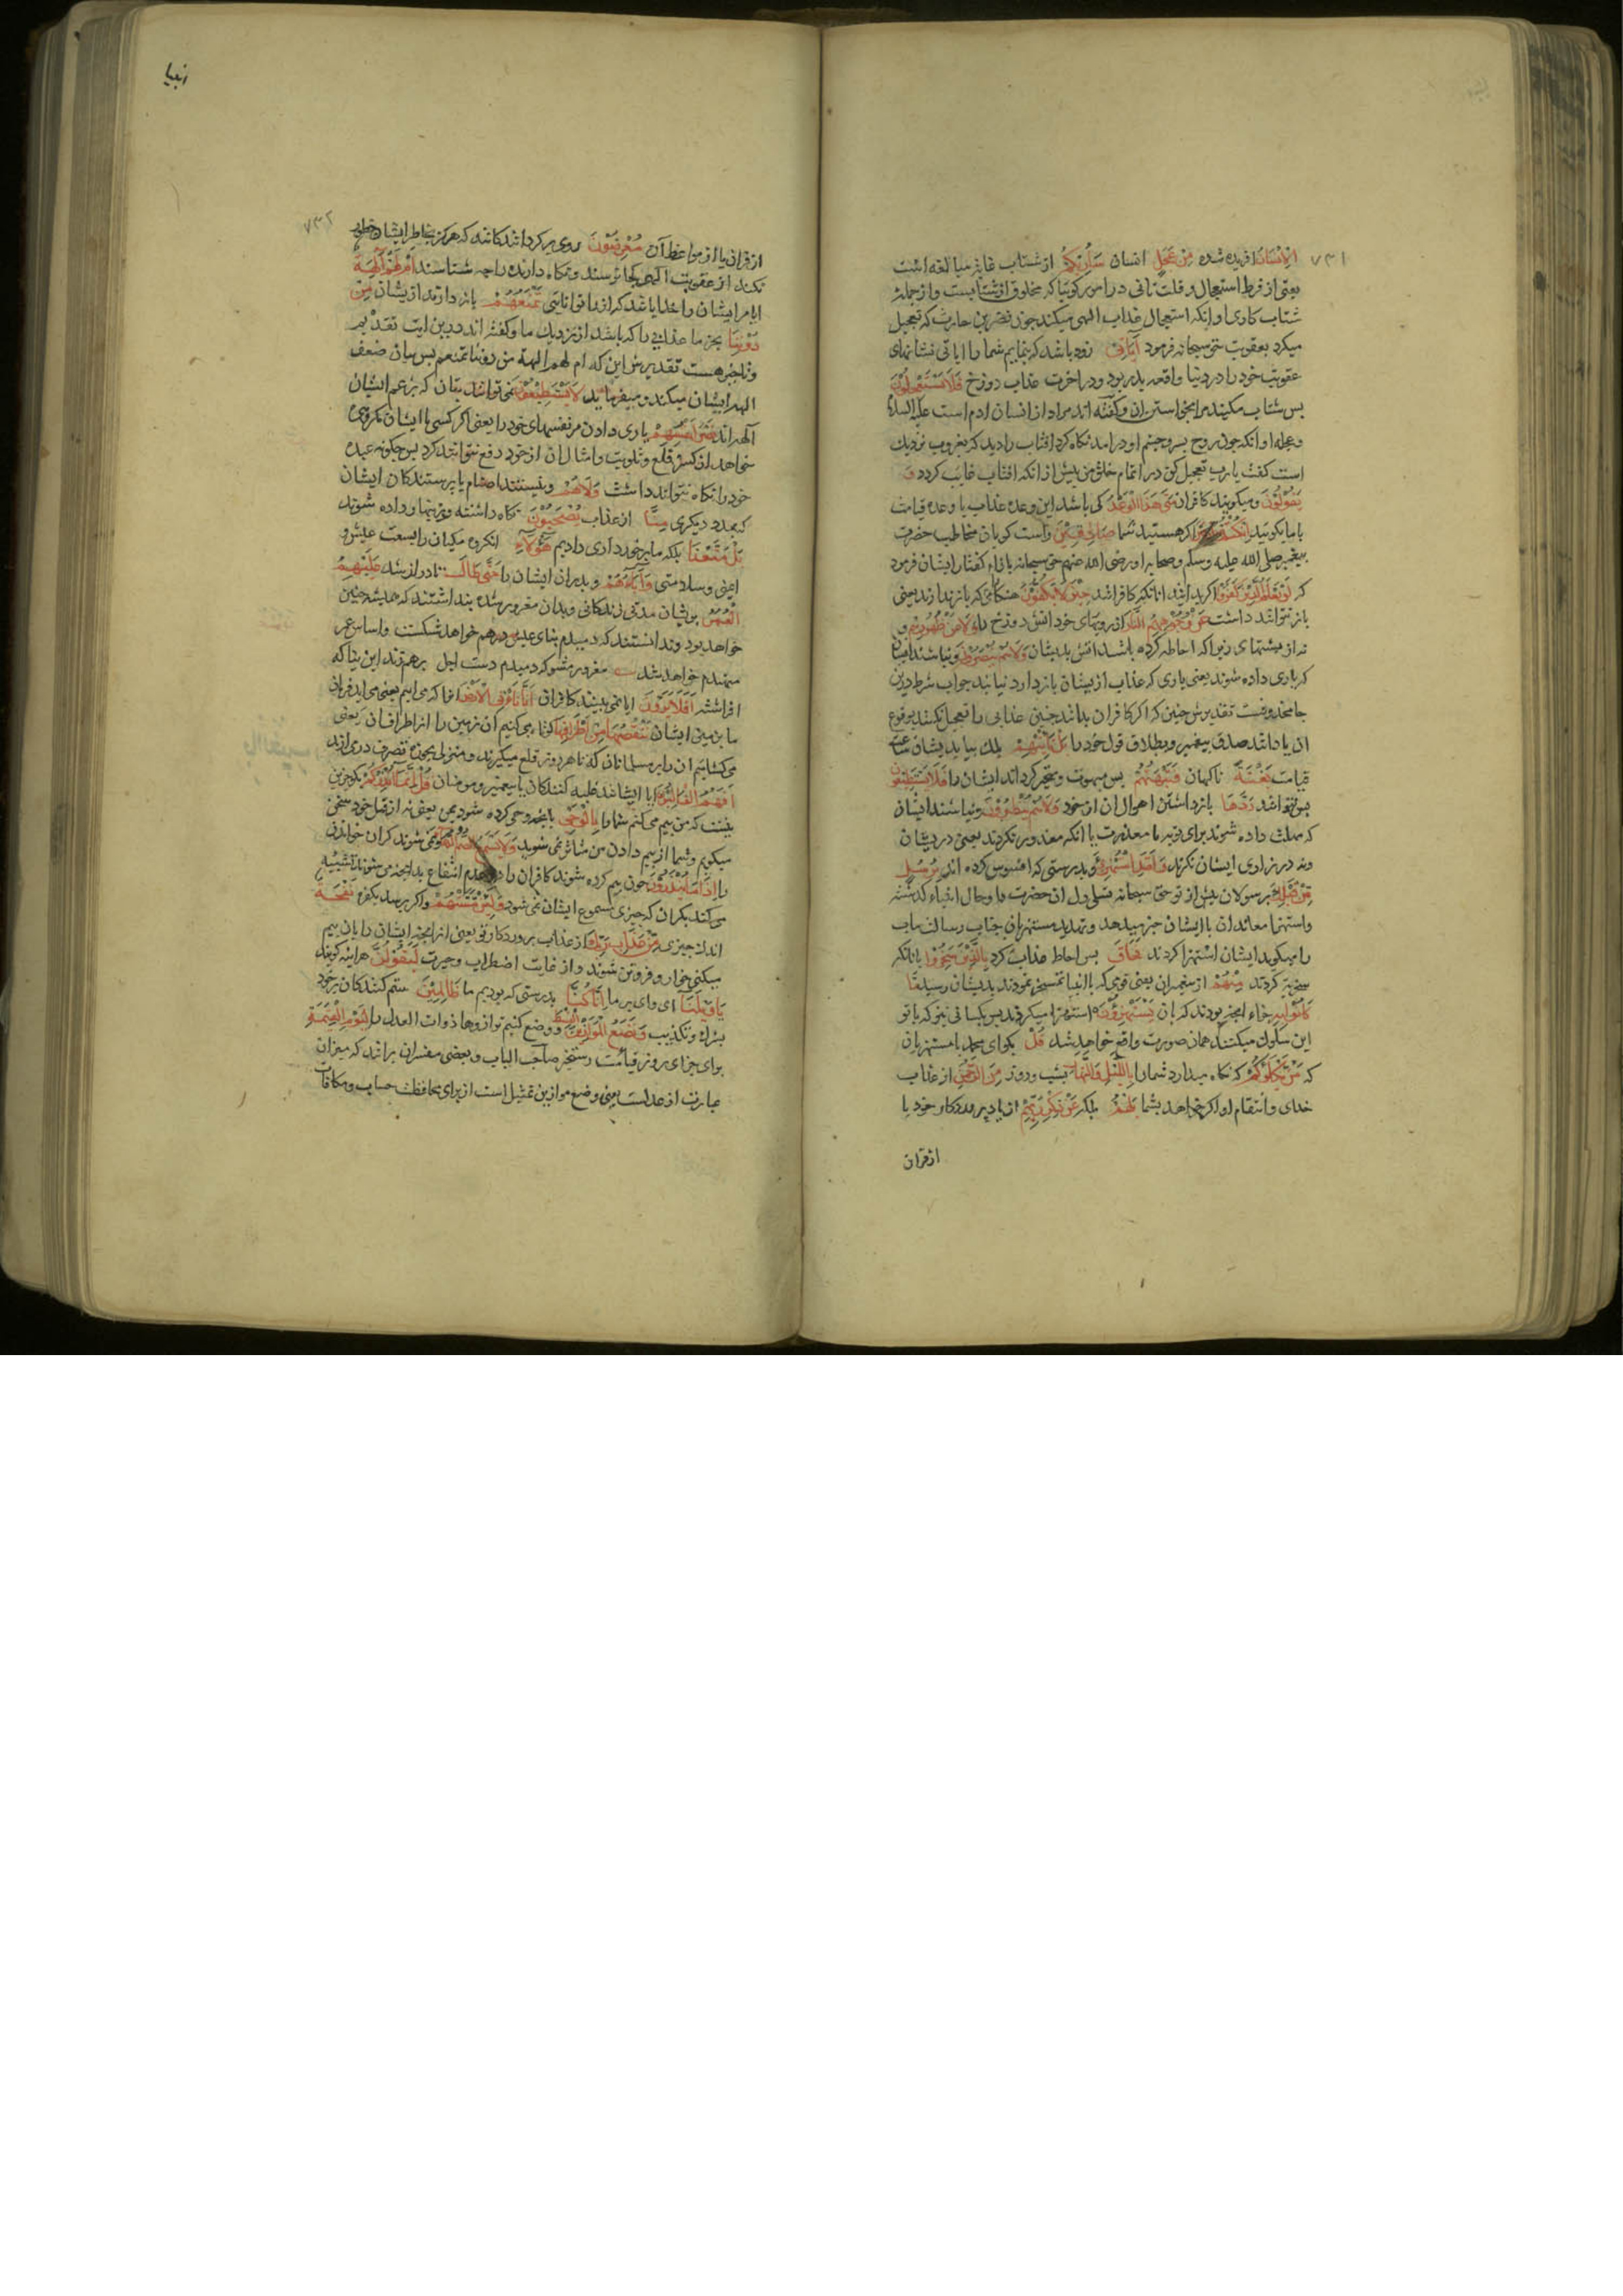 ۷۳۱
الْاِنْسَانُ افریده شده مِنْ عَجَلٍ انسان سَاُرِیکُمْ از شتاب غایة مبالغه است
یعنی از فرط استعجال و قلت تانی در امور کوئیا که مخلوق از شتابیست و از جملهٔ
شتاب کاری او انکه استعجال عذاب الهی میکند چون نضر بن حارث که تعجیل
میکرد بعقوبت حق سبحانه فرمود آیَاتِی زود باشد که بنمایم شما را ایاتی نشانهای
عقوبت خود را در دنیا واقعه بدر بود و در اخرت عذاب دوزخ فَلَا تَسْتَعْجِلُوْنَ
پس شتاب مکنید مرا بخواستن ان و کفته اند مراد از انسان ادم است علیه السلام
و عجله او انکه چون روح بسر و چشم او در امد نکاه کرد افتاب را دید که بغروب نزدیک
است کفت یا رب تعجیل کن در اتمام خلق من پیش از انکه افتاب غایب کردد وَ
یَقُوْلُوْنَ و میکویند کافران مَتٰی هٰذَا الْوَعْدُ کی باشد این وعده عذاب یا وعده قیامت
با ما بکوئید اِنْ کُنْتُمْ اکر هستید شما صَادِقِیْنَ راست کویان مخاطب حضرت
پیغمبر صلی الله علیه وسلم و صحابه او رضی الله عنهم حق سبحانه بازاء کفتار ایشان فرمود
که لَوْ یَعْلَمُ الَّذِیْنَ کَفَرُوْا اکر بدانند انانکه کافراند حِیْنَ لَا یَکُفُّوْنَ هنکامی که باز ندارند یعنی
باز نتوانند داشت عَنْ وُجُوْهِهِمُ النَّارَ از رویهای خود اتش دوزخ را وَلَا عَنْ ظُهُوْرِهِمْ و
نه از پشتهای زیرا که احاطه کرده باشد اتش بدیشان وَلَا هُمْ یُنْصَرُوْنَ و نباشند ایشان
که یاری داده شوند یعنی یاری که عذاب از یشان بازدارد نیابند جواب شرط درین
جا محذوفست تقدیرش چنین که اکر کافران بدانند چنین عذابی را تعجیل نکنند بوقوع
ان یا دانند صدق پیغمبر و بطلان قول خود را بَلْ تَاْتِیْهِمْ بلکه بیاید بدیشان ساعت
قیامت بَغْتَةً ناکهان فَتَبْهَتُهُمْ پس مبهوت و متحیر کرداند ایشان را فَلَا یَسْتَطِیْعُوْنَ
پس نتوانند رَدَّهَا بازداشتن اهوال ان از خود وَلَا هُمْ یُنْظَرُوْنَ و نباشند ایشان
که مهلت داده شوند برای توبه یا معذرت با انکه معذور نکردند یعنی در دیشان
و نه در زاری ایشان نکرند وَلَقَدِ اسْتُهْزِئَ و بدرستی که افسوس کرده اند بِرُسُلٍ
مِّنْ قَبْلِکَ بر سولان پیش از تو حق سبحانه تسلی دل ان حضرت را و حال انبیاء کذشته
و استهزا معاندان با ایشان خبر میدهد و تهدید مستهزیان بجناب رسالت ماب
را میکوید ایشان استهزا کردند فَحَاقَ پس احاطه عذاب کرد بِالَّذِیْنَ سَخِرُوْا با نانکه
سخریه کردند مِنْهُمْ از پیغمبران یعنی قومی که با انبیا تمسخر نمودند بدیشان رسید مَّا
کَانُوْا بِهٖ جزاء انچه بودند که بان یَسْتَهْزِءُوْنَ استهزا میکردند پس کسانی نیز که با تو
این سلوک میکنند همان صورت واقع خواهد شد قُلْ بکو ای محمد با مستهزیان
که مَنْ یَّکْلَؤُکُمْ که نکاه میدارد شما را بِاللَّیْلِ وَالنَّهَارِ بشب و روز مِنَ الرَّحْمٰنِ از عذاب
خدای و انتقام او اکر خواهد بشما بَلْ هُمْ بلکه عَنْ ذِکْرِ رَبِّهِمْ از یاد پروردکار خود یا
از قران
انبیا
۷۳۲
از قران یا از مواعظ آن مُعْرِضُوْنَ روی برکردانند کانند که هرکز بخاطر ایشان خطور
نکند از عقوبت الهی کجا ترسند و نکاه دارنده را چه شناسند اَمْ لَهُمْ اٰلِهَةٌ
ایا مر ایشان را خدایا نند که از ما تواناتی تَمْنَعُهُمْ بازدارند از یشان مِّنْ
دُوْنِنَا بجز ما عذابی را که باشد از نزدیک ما و کفته اند درین ایت تقدیم
و تاخیر هست تقدیرش این که ام لهم الهة من دوننا تمنعهم پس بیان ضعف
الهه ایشان میکند و میفرماید لَا یَسْتَطِیْعُوْنَ نمی توانند بتان که بزعم ایشان
آلهه اند نَصْرَ اَنْفُسِهِمْ یاری دادن مر نفسهای خود را یعنی اکر کسی با ایشان مکروهی
خواهد از کسر و قلع و تلویث و امثال ان از خود دفع نتوانند کرد پس چکونه عبده
خود را نکاه نتوانند داشت وَلَا هُمْ و نیستند اصنام یا پرستندکان ایشان
که بمدد دیکری مِنَّا از عذاب یُصْحَبُوْنَ نکاه داشته و زینهار داده شوند
بَلْ مَتَّعْنَا بلکه ما برخورداری دادیم هٰؤُلَاءِ انکروه مکیان را بسعت عیش و
ایمنی و سلامتی وَاٰبَاءَهُمْ و پدران ایشان را حَتّٰی طَالَ تا دراز شد عَلَیْهِمُ
الْعُمُرُ بریشان مدتی زندکانی و بدان مغرور شده پنداشتند که همیشه چنین
خواهد بود و ندانستند که دمبدم بنای عیش درهم خواهد شکست و اساس عمر
منهدم خواهد شد مغرور مشو که دمبدم دست اجل برهم زند این بنا که
افراشته اَفَلَا یَرَوْنَ ایا نمی بینند کافران اَنَّا نَاْتِی الْاَرْضَ انرا که می ایم یعنی می اید فرمان
ما بزمین ایشان نَنْقُصُهَا مِنْ اَطْرَافِهَا کم می کنیم آن زمین را از اطراف ان یعنی
می کشائیم ان را بر مسلمانان که تا هر روز قلع میکیرند و منزلی بحوزه تصرف درمی ارند
اَفَهُمُ الْغَالِبُوْنَ ایا ایشانند غلبه کنندکان یا پیغمبر و مومنان قُلْ اِنَّمَا اُنْذِرُکُمْ بکو جز این
نیست که من بیم می کنم شما را بِالْوَحْیِ بانچه وحی کرده شود بمن یعنی نه از قبل خود سخن
میکویم و شما از بیم دادن من متاثر نمی شوید وَلَا یَسْمَعُ الصُّمُّ الدُّعَاءَ و نمی شنوند کران خواندن
را اِذَا مَا یُنْذَرُوْنَ چون بیم کرده شوند کافران را در عدم انتفاع بدانچه می شنوند تشبیه
می کند بکران که چیزی مسموع ایشان نمی شود وَلَئِنْ مَّسَّتْهُمْ و اکر برسد بکفره نَفْحَةٌ
اندک چیزی مِّنْ عَذَابِ رَبِّکَ از عذاب پروردکار تو یعنی از انچه ایشان را بان بیم
میکنی خوار و فروتن شوند و از غایت اضطراب و حیرت لَیَقُوْلُنَّ هراینه کویند
یَا وَیْلَنَا ای وای بر ما اِنَّا کُنَّا بدرستی که بودیم ما ظَالِمِیْنَ ستم کنندکان بر خود
بشرک و تکذیب وَنَضَعُ الْمَوَازِیْنَ الْقِسْطَ و وضع کنیم ترازوها ذوات العدل را لِیَوْمِ الْقِیٰمَةِ
برای جزای روز قیامت رستخیز صاحب الباب و بعضی مفسران برانند که میزان
عبارت از عدلست یعنی وضع موازین تمثیل است از برای محافظت حساب و مکافات